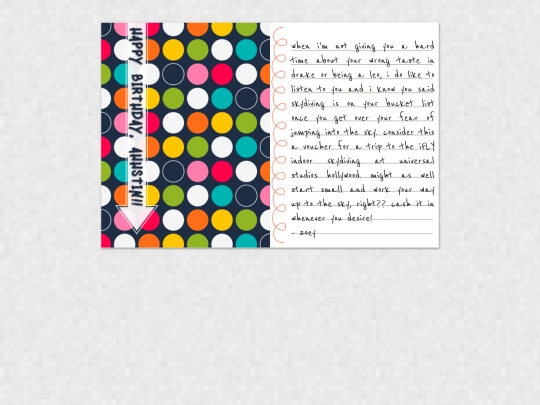 HAPPY BIRTHDAY, AHUSTIN!!
when i'm not giving you a hard
time about your wrong taste in
drake or being a leo, i do like to
listen to you and i know you said
skydiving is on your bucket list
once you get over your fear of
jumping into the sky. consider this
a voucher for a trip to the iFLY
indoor skydiving at universal
studios hollywood. might as well
start small and work your way
up to the sky, right?? cash it in
whenever you desire!
- zoey